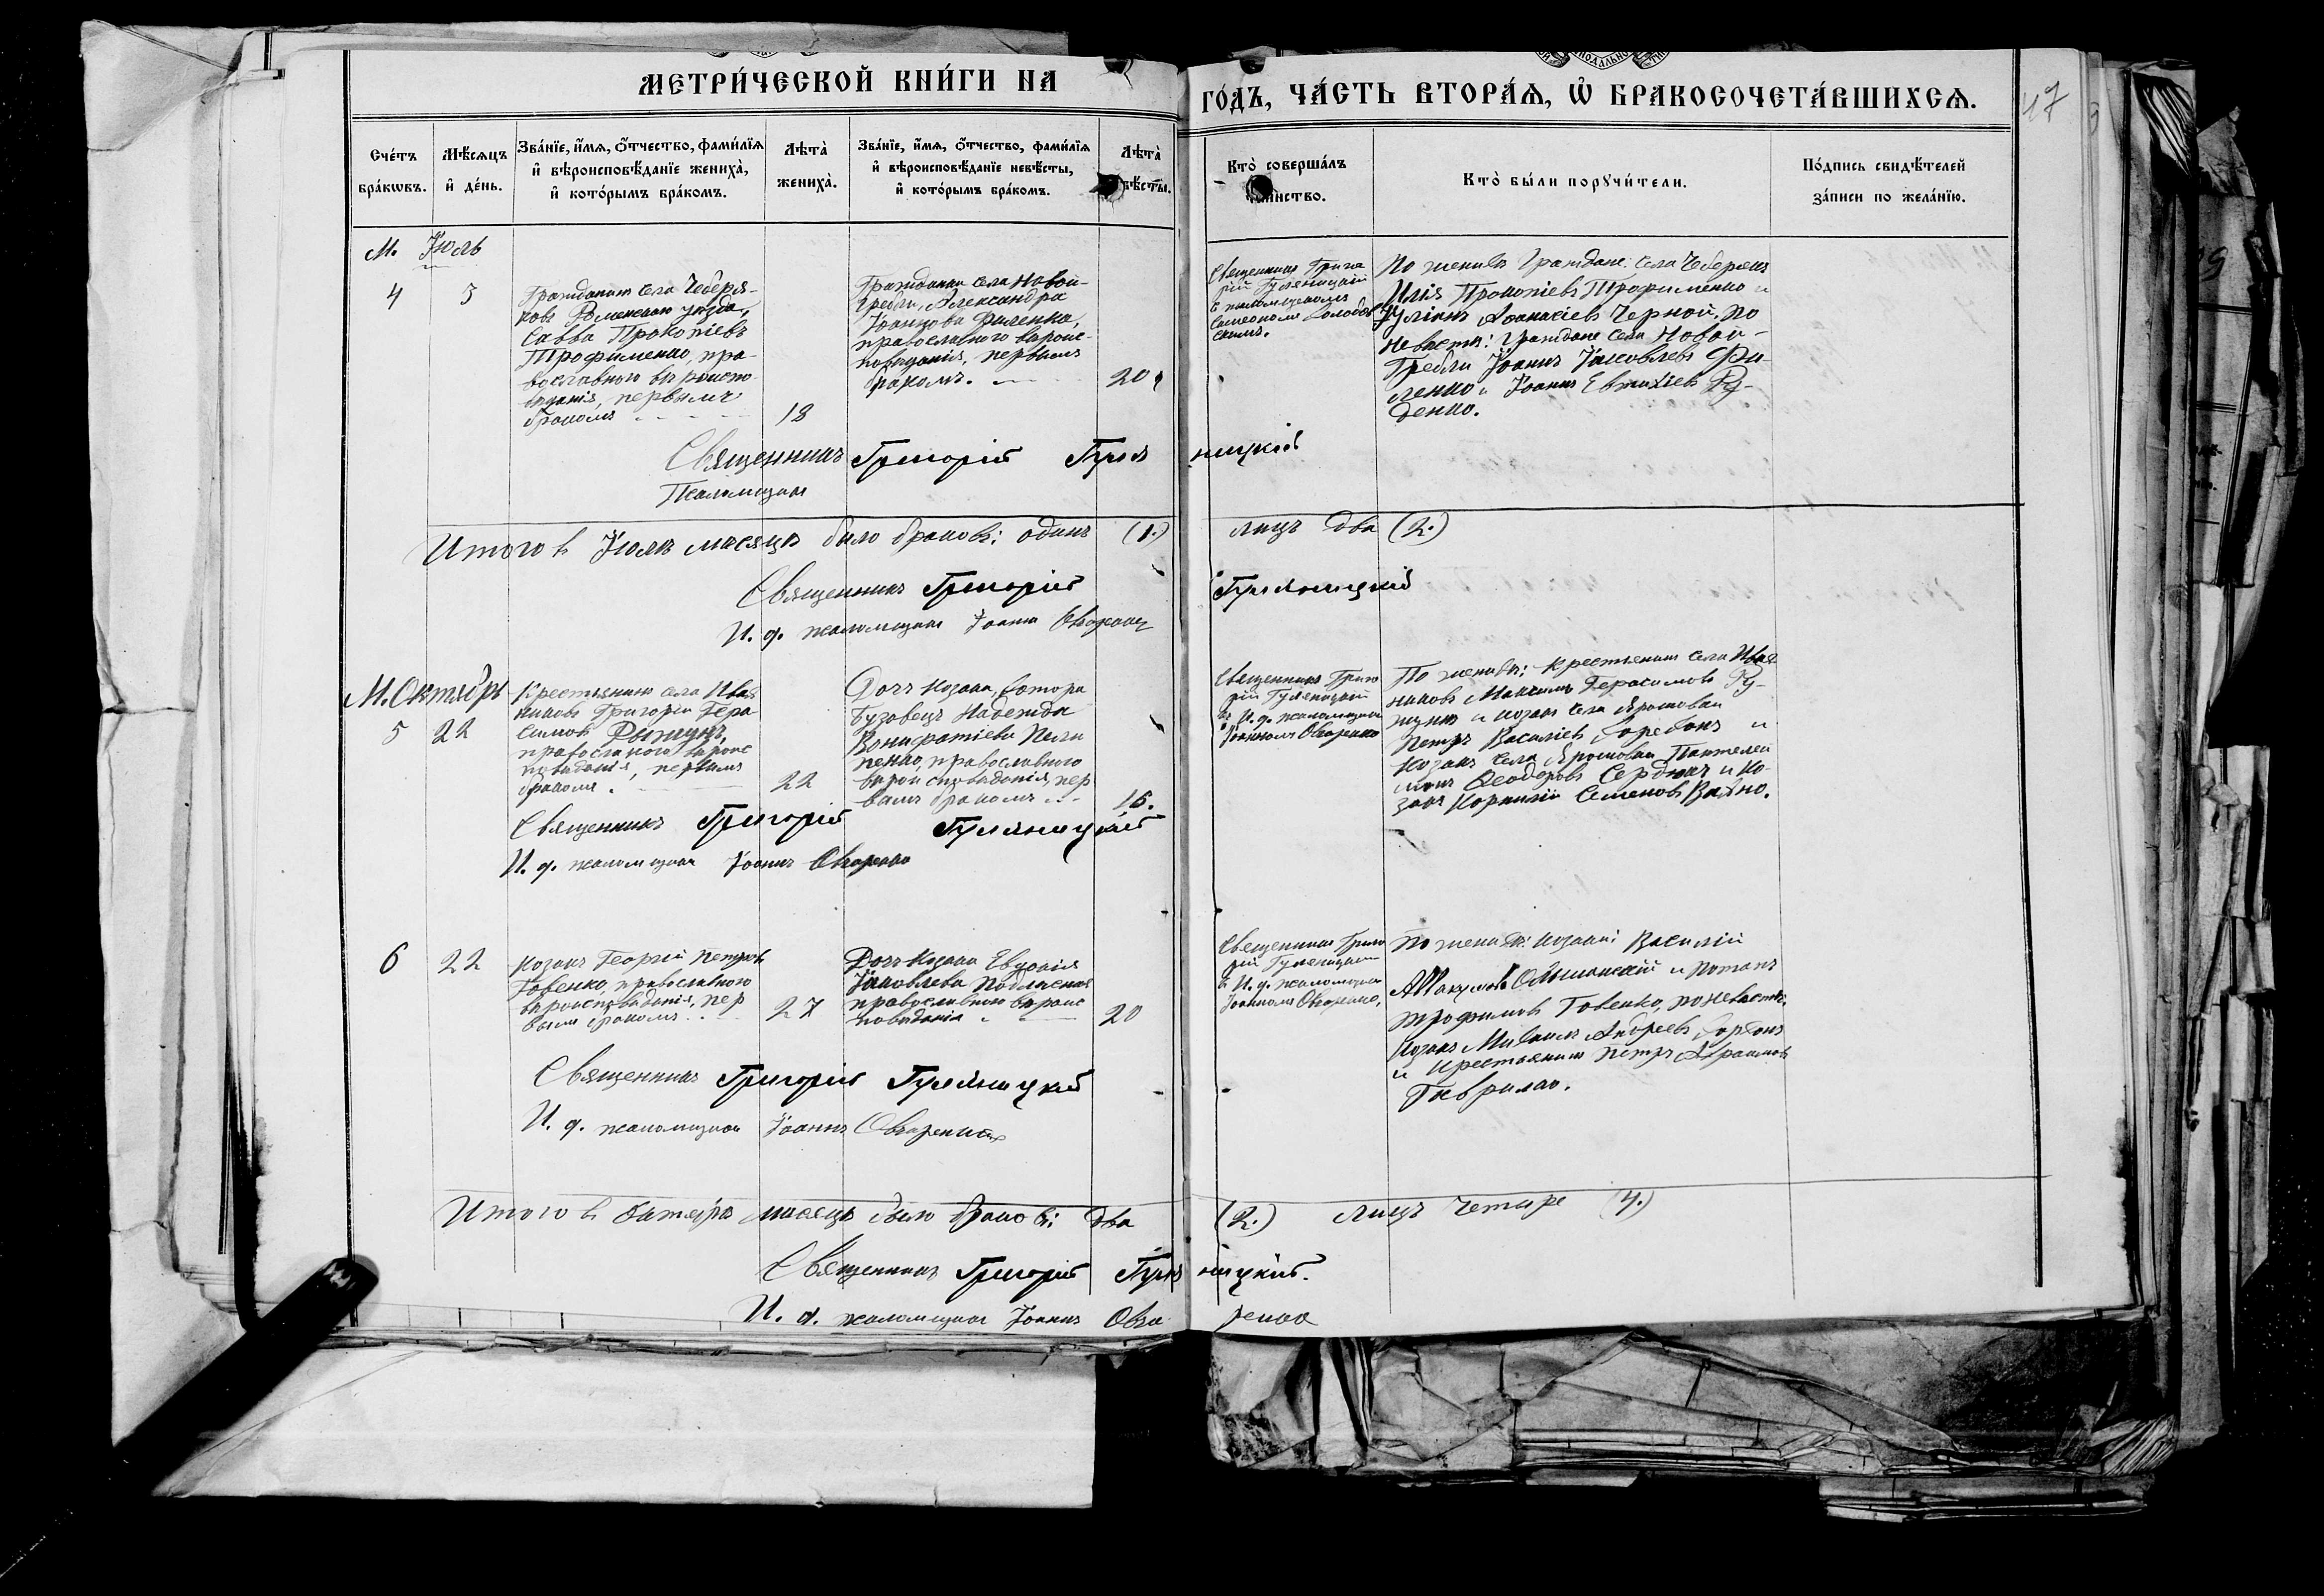 МЕТРИ́ЧЕСКОЙ КНИ́ГИ НА
ГО́ДЪ, ЧА́СТЬ ВТОРА́Ѧ, Ѡ҆ БРАКОСОЧЕТА́ВШИХСѦ.
47
Сче́тъ бра́кωвъ.
Мѣ́сѧцъ и҆ де́нь.
Зва́нїе, и҆́мѧ, ѻ҆́тчество, фами́лїѧ
и҆ вѣроисповѣ́данїе жениха̀,
и҆ кото́рымъ бра́комъ.
Лѣта̀ жениха̀.
Зва́нїе, и҆́мѧ, ѻ҆́тчество, фами́лїѧ
и҆ вѣроисповѣ́данїе невѣ́сты,
и҆ кото́рымъ бра́комъ.
Лѣта̀
Кто̀ соверша́лъ
Кто̀ бы́ли порꙋчи́тели.
По́дпись свидѣ́телей
за́писи по жела́нїю.
М. Іюль
4
3
Гражданинъ села Чеберя-
ковъ Роменскаго уѣзда,
Савва Прокопіевъ
Трофименко, пра-
вославнаго вѣроиспо-
вѣданія, первымъ
бракомъ
18
Гражданка села Новой-
Гребли, Александра
Іоаннова Филенко,
православнаго вѣроис-
повѣданія, первымъ
бракомъ.
20
Священникъ Григо
рій Гуляницкій
съ псаломщикомъ
По женихѣ граждане: села Чеберякъ
Илія Прокопіевъ Трофименко и
Іуліанъ Аѳанасіевъ Черной, по
невѣстѣ: граждане села Новой-
Гребли Іоаннъ Іаковлевъ Фи-
ленко и Іоаннъ Евтихіевъ Ру-
денко.
Священникъ Григорій Гуляницкій
Псаломщикъ
Итого въ Іюлѣ мѣсяцѣ было браковъ: одинъ (1.) лицъ два (2.)
Священникъ Григорій Гуляницкій
И. д. псаломщика Іоаннъ
М. Октябрь
5
22
Крестьянинъ села Ива
никовъ Григорій Гера
симовъ
православнаго вѣроис
повѣданія, первымъ
бракомъ.
22
Дочь козака, хутора
Бузовецъ Надежда
Вонифатіева
православнаго
вѣроисповѣданія, пер
вымъ бракомъ
16.
Священникъ Григо
рій Гуляницкій
съ И. д. псаломщика
По женихѣ: крестьянинъ села Ива
никовъ Максимъ Герасимовъ
и козакъ села Ярошовки
Петръ Василіевъ Горбань и
козакъ села Ярошовки Пантелей
монъ Ѳеодоровъ Сердюкъ и ко-
закъ Корнилій Семеновъ
Священникъ Григорій Гуляницкій
И. д. псаломщика Іоаннъ
6
22
Козакъ Георгій Петровъ
Говенко, православнаго
вѣроисповѣданія, пер
вымъ бракомъ
27
Дочь козака Евдокія
Іаковлева
православнаго вѣроис
повѣданія
20
Священникъ Григо
рій Гуляницкій
съ И. д. псаломщика
По женихѣ: козаки: Василій
Аввакумовъ Ольшанскій и Потапъ
Трофимовъ Говенко, по невѣстѣ:
козакъ Михаилъ Андреевъ Горбань
и крестьянинъ Петръ Абрамовъ
Гаврилко.
Священникъ Григорій Гуляницкій
И. д. псаломщика Іоаннъ
Итого въ Октябрѣ мѣсяцѣ было браковъ: два (2.) Лицъ четыре (4.)
Священникъ Григорій Гуляницкій.
И. д. псаломщика Іоаннъ